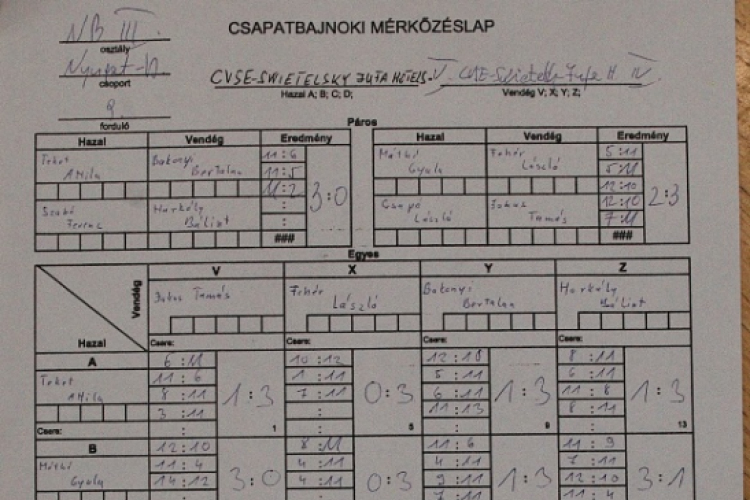 CSAPATBAJNOKI MÉRKŐZÉSLAP
NB III.
osztály
Nyugat-
csoport
9.
forduló
CVSE-SWIETELSKY JUTA HOTELS V.
Hazai A; B; C; D;
Vendég V; X; Y; Z;
IV.
Páros
Hazai Vendég Eredmény
Teket Attila Bakonyi Bertalan
11:6
11:5
11:2
3:0
Szabó Ferenc Harkály Bálint
:
:
###
Hazai Vendég Eredmény
Máthé Gyula Fehér László
5:11
5:11
12:10
12:10
7:11
2:3
Csapó László Jukus Tamás
###
Egyes
Vendég
Hazai
V X Y Z
Jukus Tamás Fehér László Bakonyi Bertalan Harkály Bálint
Csere: Csere: Csere: Csere:
A
Teket Attila
Csere:
6:11
11:6
8:11
3:11
:
1:3
1
10:12
1:11
7:11
:
:
0:3
5
12:10
5:11
6:11
11:13
:
1:3
9
8:11
6:11
11:8
8:11
:
1:3
13
B
Máthé Gyula
12:10
11:4
14:12
3:0
8:11
4:11
4:11
0:3
11:6
4:11
9:11
7:11
1:3
11:9
7:11
12:10
11:4
3:1